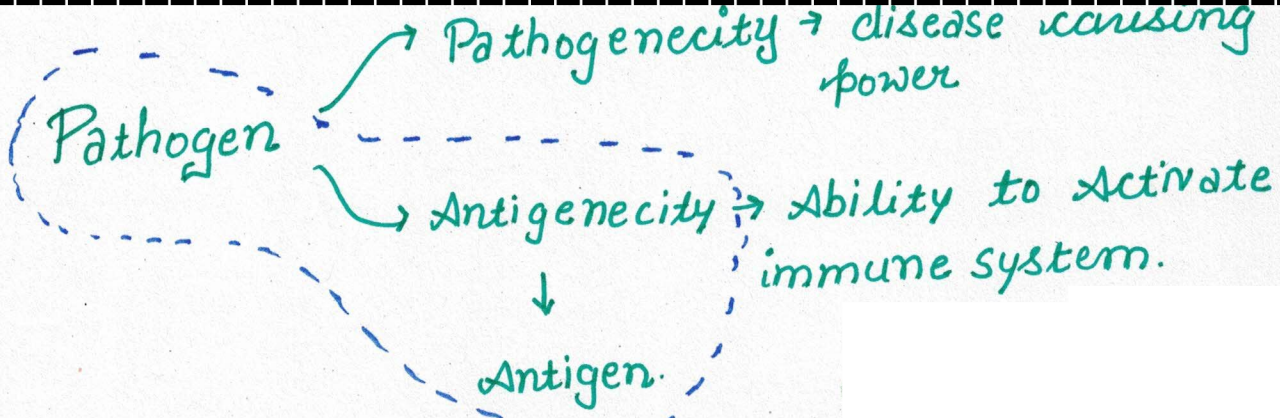 Pathogenecity → disease causing
power
Pathogen
Antigenecity → Ability to Activate
immune system.
↓
Antigen.